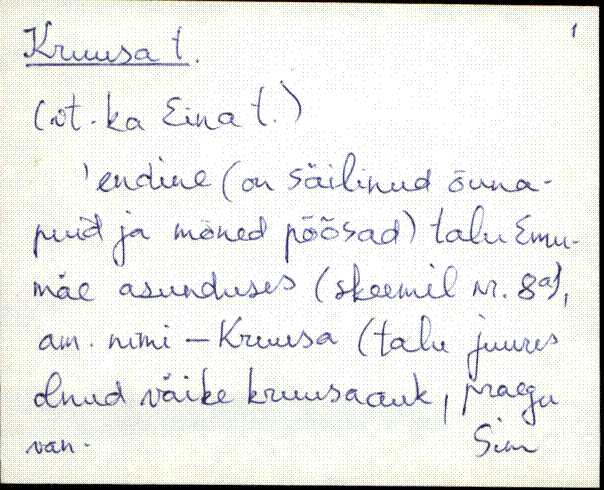 1
Kruusa t.
(vt. ka Eina t.)
'endine (on säilinud õuna-
puid ja mõned põõsad) talu Emu-
mäe asunduses (skeemil nr. 8a),
am. nimi - Kruusa (talu juures
olnud väike kruusaauk, praegu
van. Sim